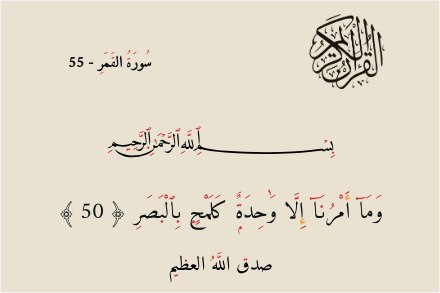 القرآن الكريم
سُورَةُ القَمَرِ - 55
بِسْمِ ٱللَّهِ ٱلرَّحْمَٰنِ ٱلرَّحِيمِ
وَمَآ أَمْرُنَآ إِلَّا وَٰحِدَةٌ كَلَمْحٍ بِٱلْبَصَرِ ﴿ 50 ﴾
صدق اللَّهُ العظيم